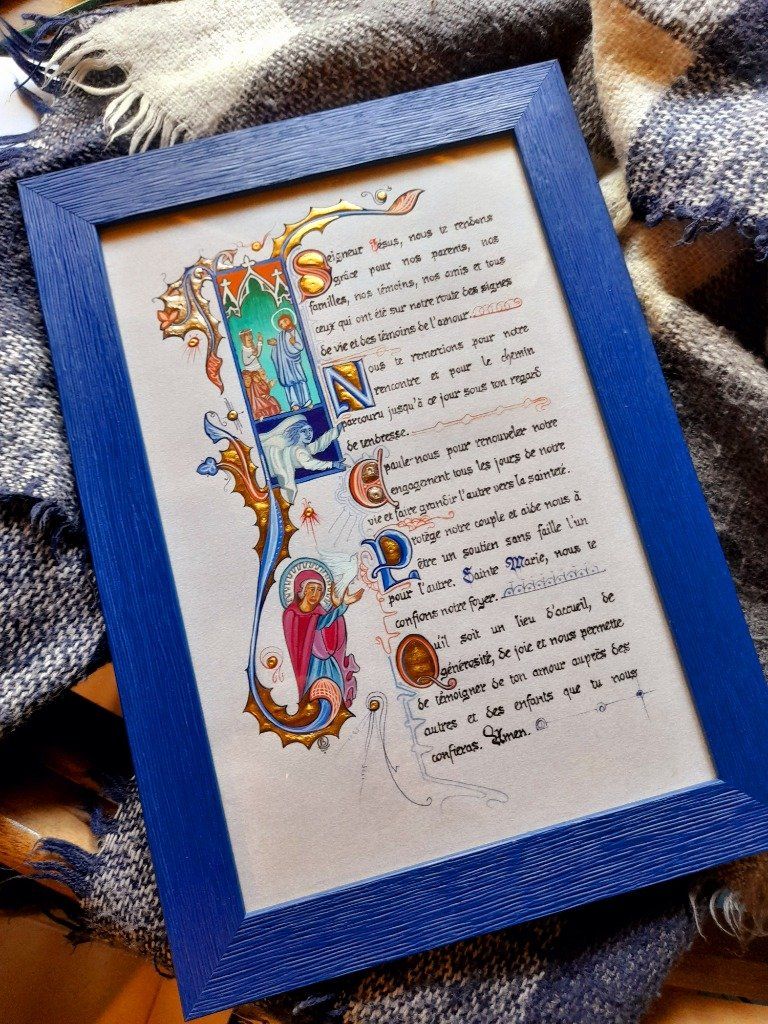 Seigneur Jésus, nous te rendons
grâce pour nos parents, nos
familles, nos témoins, nos amis et tous
ceux qui ont été sur notre route des signes
de vie et des témoins de l'amour.
Nous te remercions pour notre
rencontre et pour le chemin
parcouru jusqu'à ce jour sous ton regard
de tendresse.
Epaule-nous pour renouveler notre
engagement tous les jours de notre
vie et faire grandir l'autre vers la sainteté.
Protège notre couple et aide nous à
être un soutien sans faille l'un
pour l'autre. Sainte Marie, nous te
confions notre foyer.
Qu'il soit un lieu d'accueil, de
générosité, de joie et nous permette
de témoigner de ton amour auprès des
autres et des enfants que tu nous
confieras. Amen.